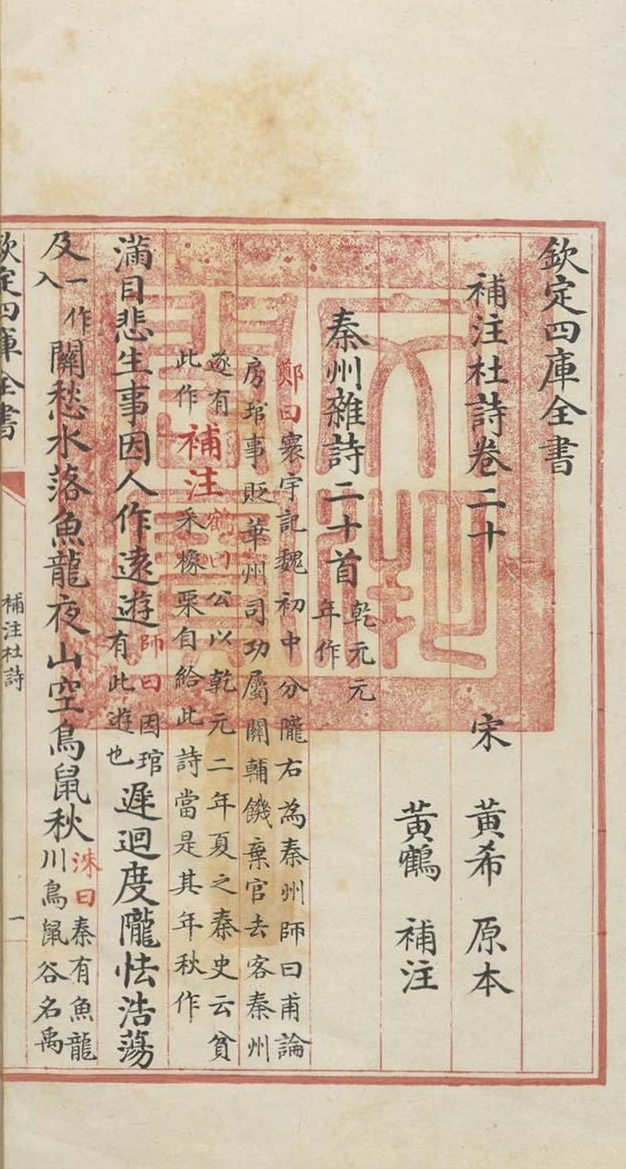 欽定四庫全書
補注杜詩卷二十 宋 黃希 原本
黃鶴 補注
秦州雜詩二十首 乾元元年作
鄭曰寰宇記魏初中分隴右為秦州師曰甫論
房琯事貶華州司功屬關輔饑棄官去客秦州
遂有此作補注鶴曰公以乾元二年夏之秦史云貧采橡栗自給此詩當是其年秋作
滿目悲生事因人作遠遊師曰因琯有此遊也遲迴度隴怯浩蕩
及一作入關愁水落魚龍夜山空鳥鼠秋洙曰秦有魚龍川鳥鼠谷名禹
欽定四庫全書
補注杜詩
一
文淵閣寶